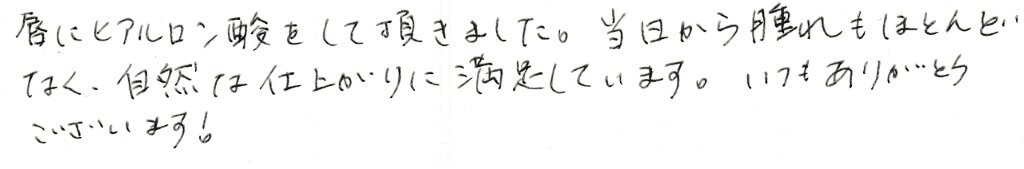 唇にヒアルロン酸をして頂きました。当日から腫れもほとんど
なく、自然な仕上がりに満足しています。いつもありがとう
ございます!